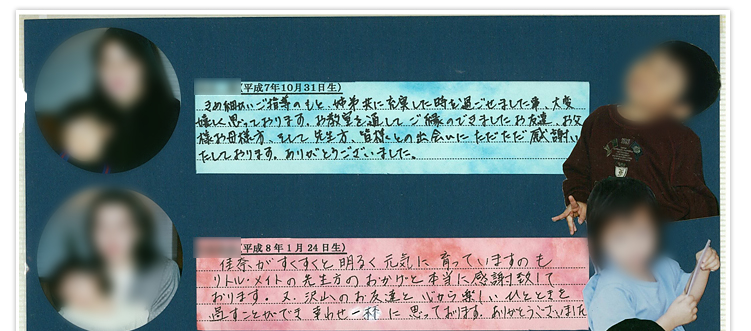 (平成7年10月31日生)
きめ細かいご指導のもと、姉弟共に充実した時を過ごせました事、大変
嬉しく思っております。お教室を通してご縁のできましたお友達、お父
様お母様方、そして先生方、皆様との出会いにただただ感謝い
たしております。ありがとうございました。
(平成8年1月24日生)
佳奈がすくすくと明るく元気に育っていますのも
リトル・メイトの先生方のおかげと本当に感謝致して
おります。又、沢山のお友達と心から楽しいひとときを
過すことができ幸わせ一杯に思っております。ありがとうございました